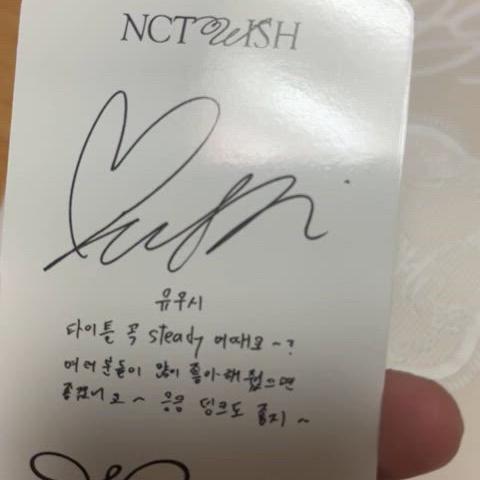 NCT WISH
유우시
타이틀 곡 steady 어때요~?
여러분들이 많이 좋아해줬으면
좋겠네요~ 응응 덩크도 좋지~